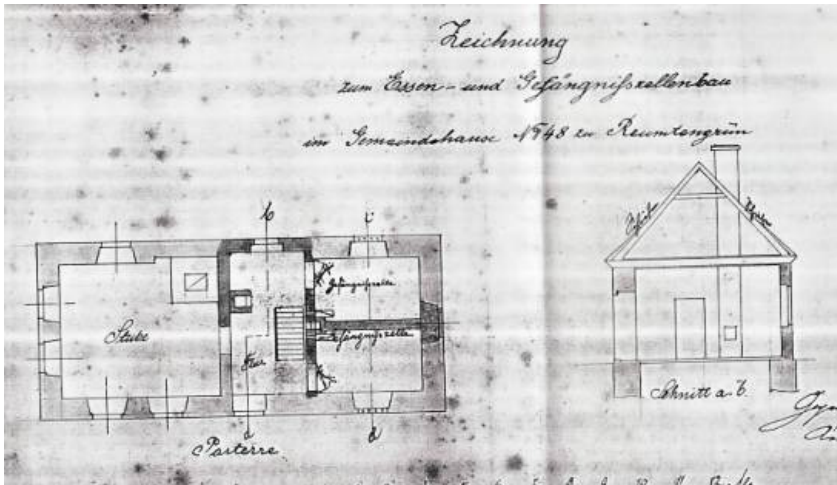 Zeichnung
zum Essen- und Gefängnißzellenbau
im Gemeindehause № 48 zu Reumtengrün
b
c
Gefängnißzelle
Stube
Gefängnißzelle
Flur
a
d
Parterre.
Schiefer
Schiefer
Schnitt a. b.